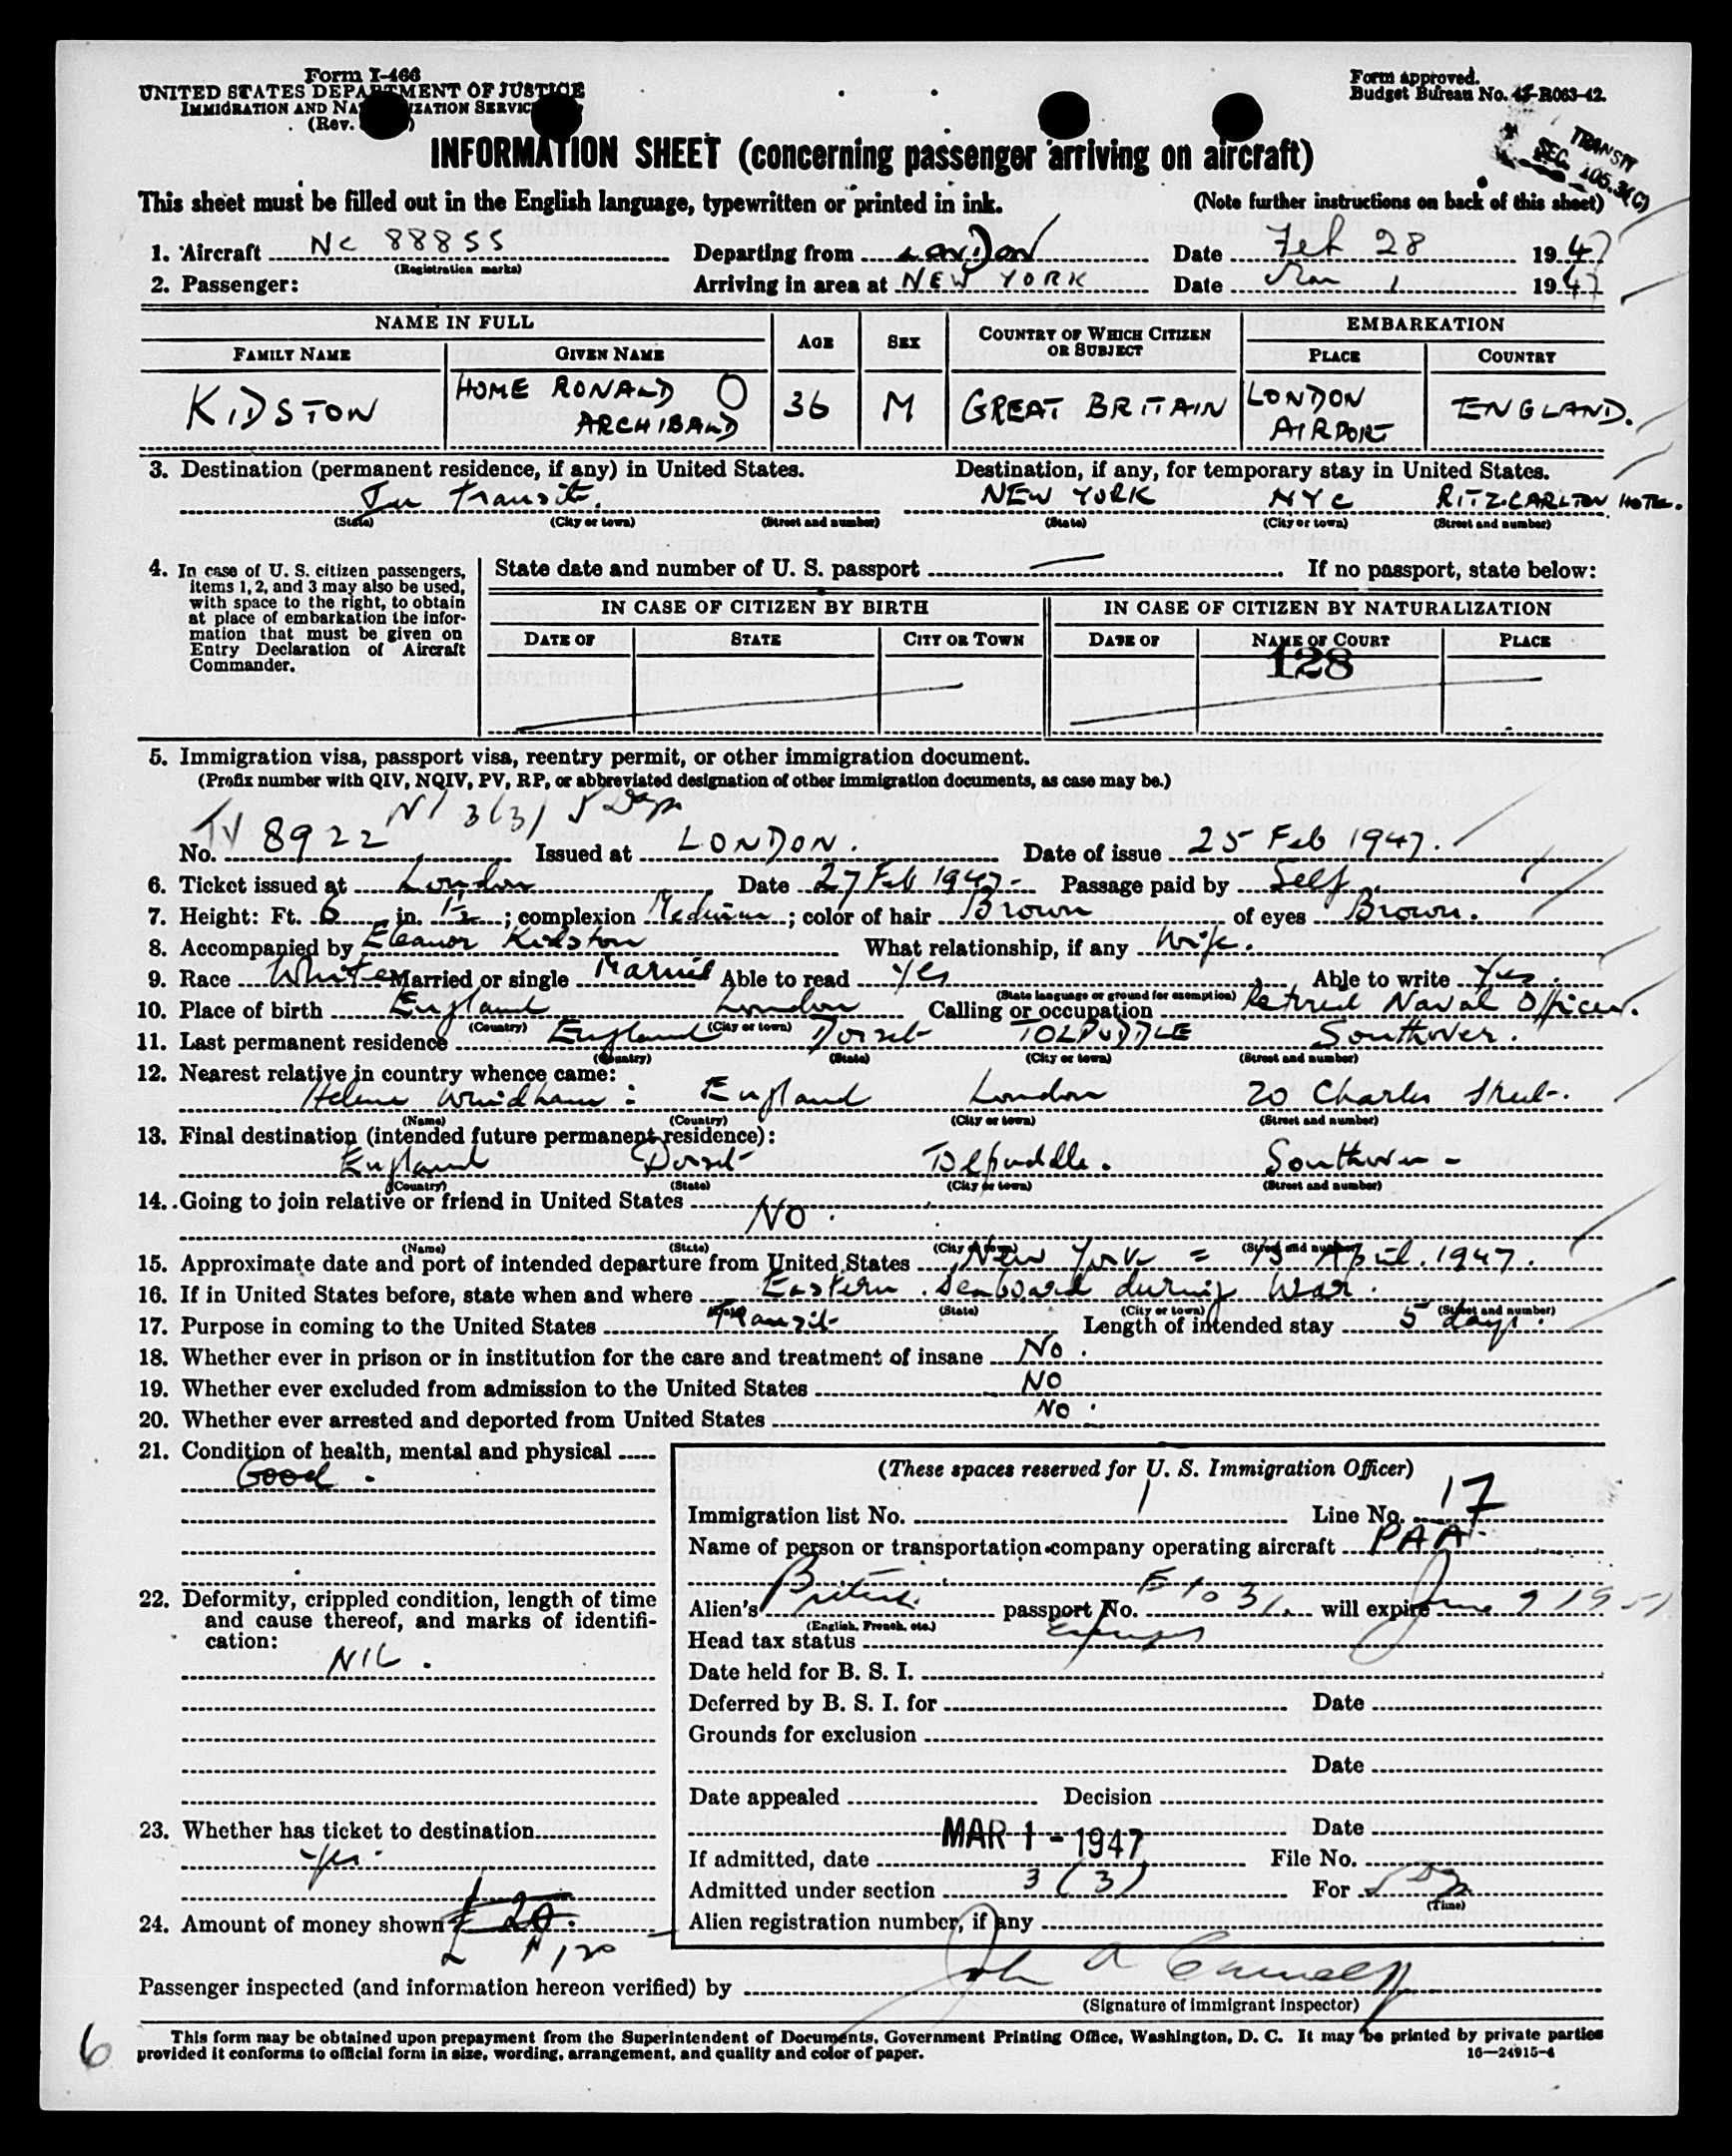 Form I-466
UNITED STATES DEPARTMENT OF JUSTICE
IMMIGRATION AND NATURALIZATION SERVICE
(Rev. )
Form approved.
Budget Bureau No. 43-R063-42.
TRANSIT
SEC. 105.3(C)
INFORMATION SHEET (concerning passenger arriving on aircraft)
This sheet must be filled out in the English language, typewritten or printed in ink. (Note further instructions on back of this sheet)
1. Aircraft NC 88855 Departing from LONDON Date Feb 28 1947
(Registration marks)
2. Passenger: Arriving in area at NEW YORK Date Mar 1 1947
NAME IN FULL AGE SEX COUNTRY OF WHICH CITIZEN OR SUBJECT EMBARKATION
FAMILY NAME GIVEN NAME PLACE COUNTRY
KIDSTON HOME RONALD ARCHIBALD 36 M GREAT BRITAIN LONDON AIRPORT ENGLAND.
3. Destination (permanent residence, if any) in United States. Destination, if any, for temporary stay in United States.
In transit. NEW YORK NYC RITZ.CARLTON HOTEL.
(State) (City or town) (Street and number) (State) (City or town) (Street and number)
4. In case of U. S. citizen passengers, items 1, 2, and 3 may also be used, with space to the right, to obtain at place of embarkation the information that must be given on Entry Declaration of Aircraft Commander.
State date and number of U. S. passport If no passport, state below:
IN CASE OF CITIZEN BY BIRTH IN CASE OF CITIZEN BY NATURALIZATION
DATE OF STATE CITY OR TOWN DATE OF NAME OF COURT PLACE
128
5. Immigration visa, passport visa, reentry permit, or other immigration document.
(Prefix number with QIV, NQIV, PV, RP, or abbreviated designation of other immigration documents, as case may be.)
3(3) 5 Days
No. TV 8922 Issued at LONDON. Date of issue 25 Feb 1947.
6. Ticket issued at London Date 27 Feb 1947 - Passage paid by Self
7. Height: Ft. 6 in. 1½; complexion Medium; color of hair Brown of eyes Brown.
8. Accompanied by Eleanor Kidston What relationship, if any Wife.
9. Race White Married or single Married Able to read Yes Able to write Yes.
(State language or ground for exemption)
10. Place of birth England London Calling or occupation Retired Naval Officer.
(Country) (City or town)
11. Last permanent residence England Dorset TOLPUDDLE Southover.
(Country) (State) (City or town) (Street and number)
12. Nearest relative in country whence came:
Helene Windham: England London 20 Charles Street.
(Name) (Country) (City or town) (Street and number)
13. Final destination (intended future permanent residence):
England Dorset Tolpuddle. Southover -
(Country) (State) (City or town) (Street and number)
14. Going to join relative or friend in United States NO.
(Name) (State) (City or town) (Street and number)
15. Approximate date and port of intended departure from United States New York = 15 April. 1947.
16. If in United States before, state when and where Eastern Seaboard during War.
(State) (City or town) (Street and number)
17. Purpose in coming to the United States Transit Length of intended stay 5 days.
18. Whether ever in prison or in institution for the care and treatment of insane No.
19. Whether ever excluded from admission to the United States NO
20. Whether ever arrested and deported from United States No.
21. Condition of health, mental and physical
Good.
22. Deformity, crippled condition, length of time and cause thereof, and marks of identification:
NIL.
23. Whether has ticket to destination
Yes.
24. Amount of money shown £ 20.
120
(These spaces reserved for U. S. Immigration Officer)
Immigration list No. 1 Line No. 17
Name of person or transportation company operating aircraft PAA
Alien's British passport No. will expire June 9 1951
(English, French, etc.)
Head tax status
Date held for B. S. I.
Deferred by B. S. I. for Date
Grounds for exclusion
Date
Date appealed Decision
Date
If admitted, date MAR 1 - 1947 File No.
Admitted under section 3 (3) For 5 Days
(Time)
Alien registration number, if any
Passenger inspected (and information hereon verified) by John A
(Signature of immigrant inspector)
This form may be obtained upon prepayment from the Superintendent of Documents, Government Printing Office, Washington, D. C. It may be printed by private parties
provided it conforms to official form in size, wording, arrangement, and quality and color of paper. 16—24915-4
6